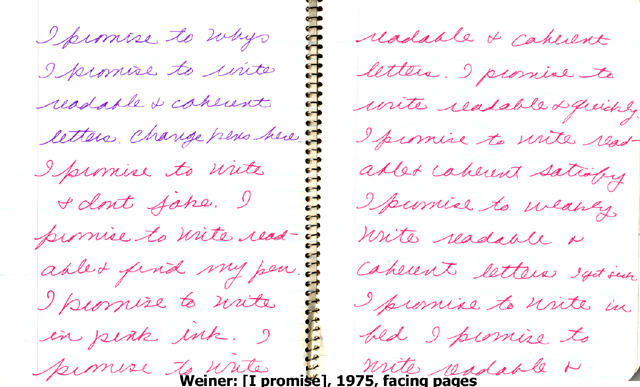 I promise to whys
I promise to write
readable & coherent
letters. Change pens here.
I promise to write
& dont joke. I
promise to write read-
able & find my pen.
I promise to write
in pink ink. I
promise to write
readable & coherent
letters. I promise to
write readable & quickly.
I promise to write read-
able & coherent satisfy
I promise to weakly
write readable &
coherent letters I get sick
I promise to write in
bed I promise to
write readable &
Weiner: [I promise], 1975, facing pages